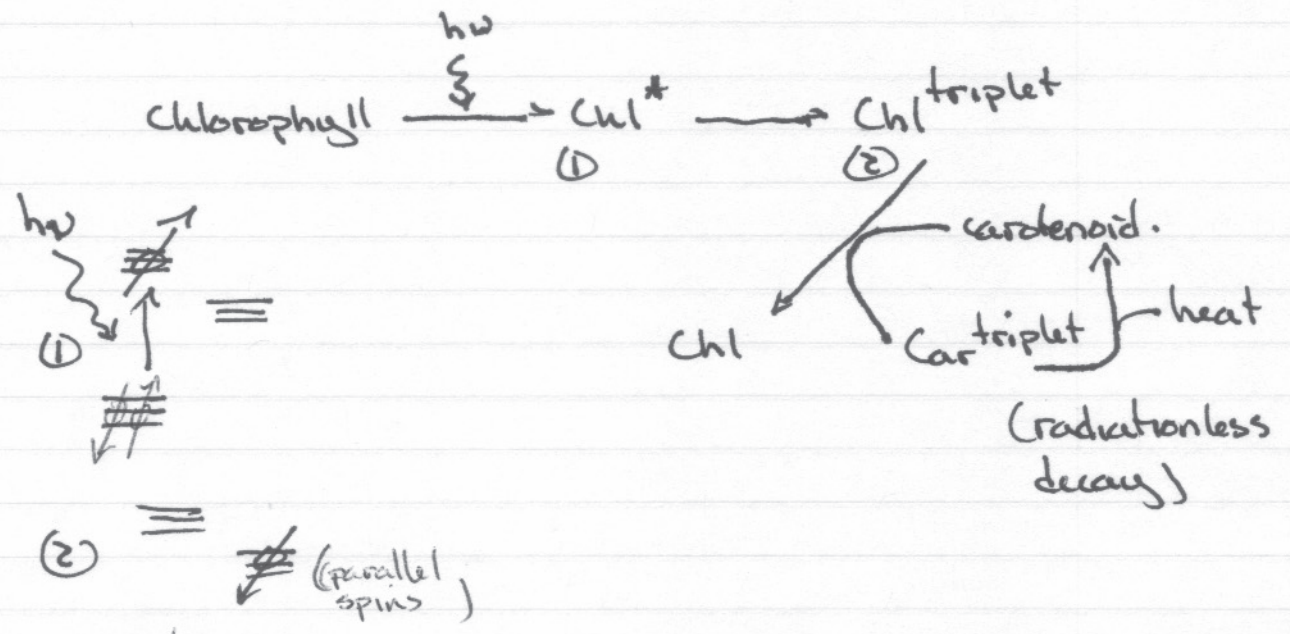 hν
Chlorophyll → Chl* → Chl triplet
① ②
hν
carotenoid.
①
Chl Car triplet heat
(radiationless
decay)
②
(parallel
spins)